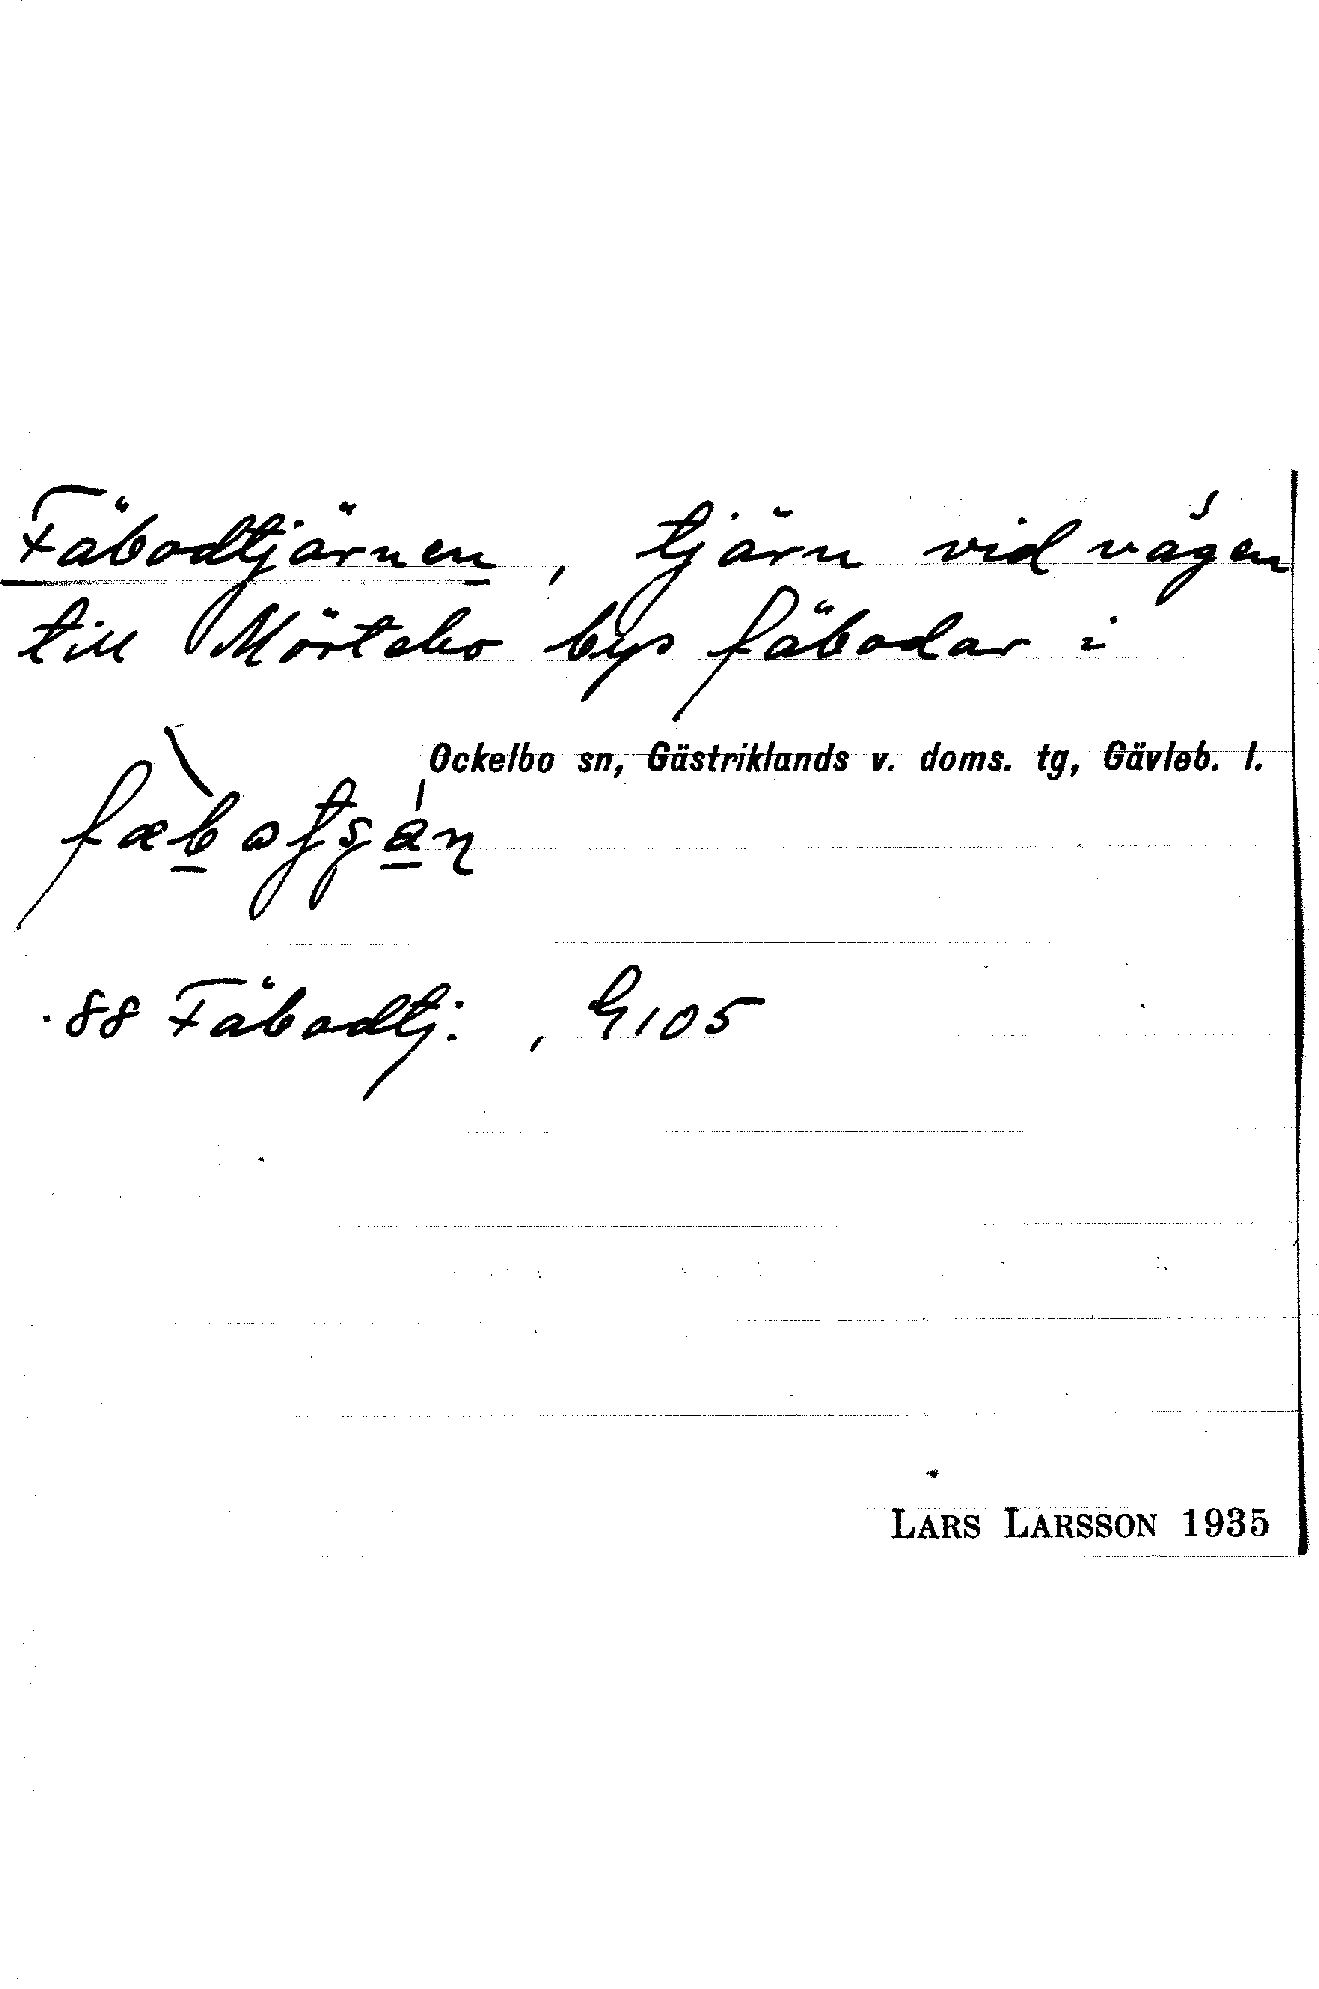 Fäbodtjärnen, tjärn vid vägen
till Mörtebo bys fäbodar i
Ockelbo sn, Gästriklands v. doms. tg, Gävleb. l.
88 Fäbodtj., G105
LARS LARSSON 1935